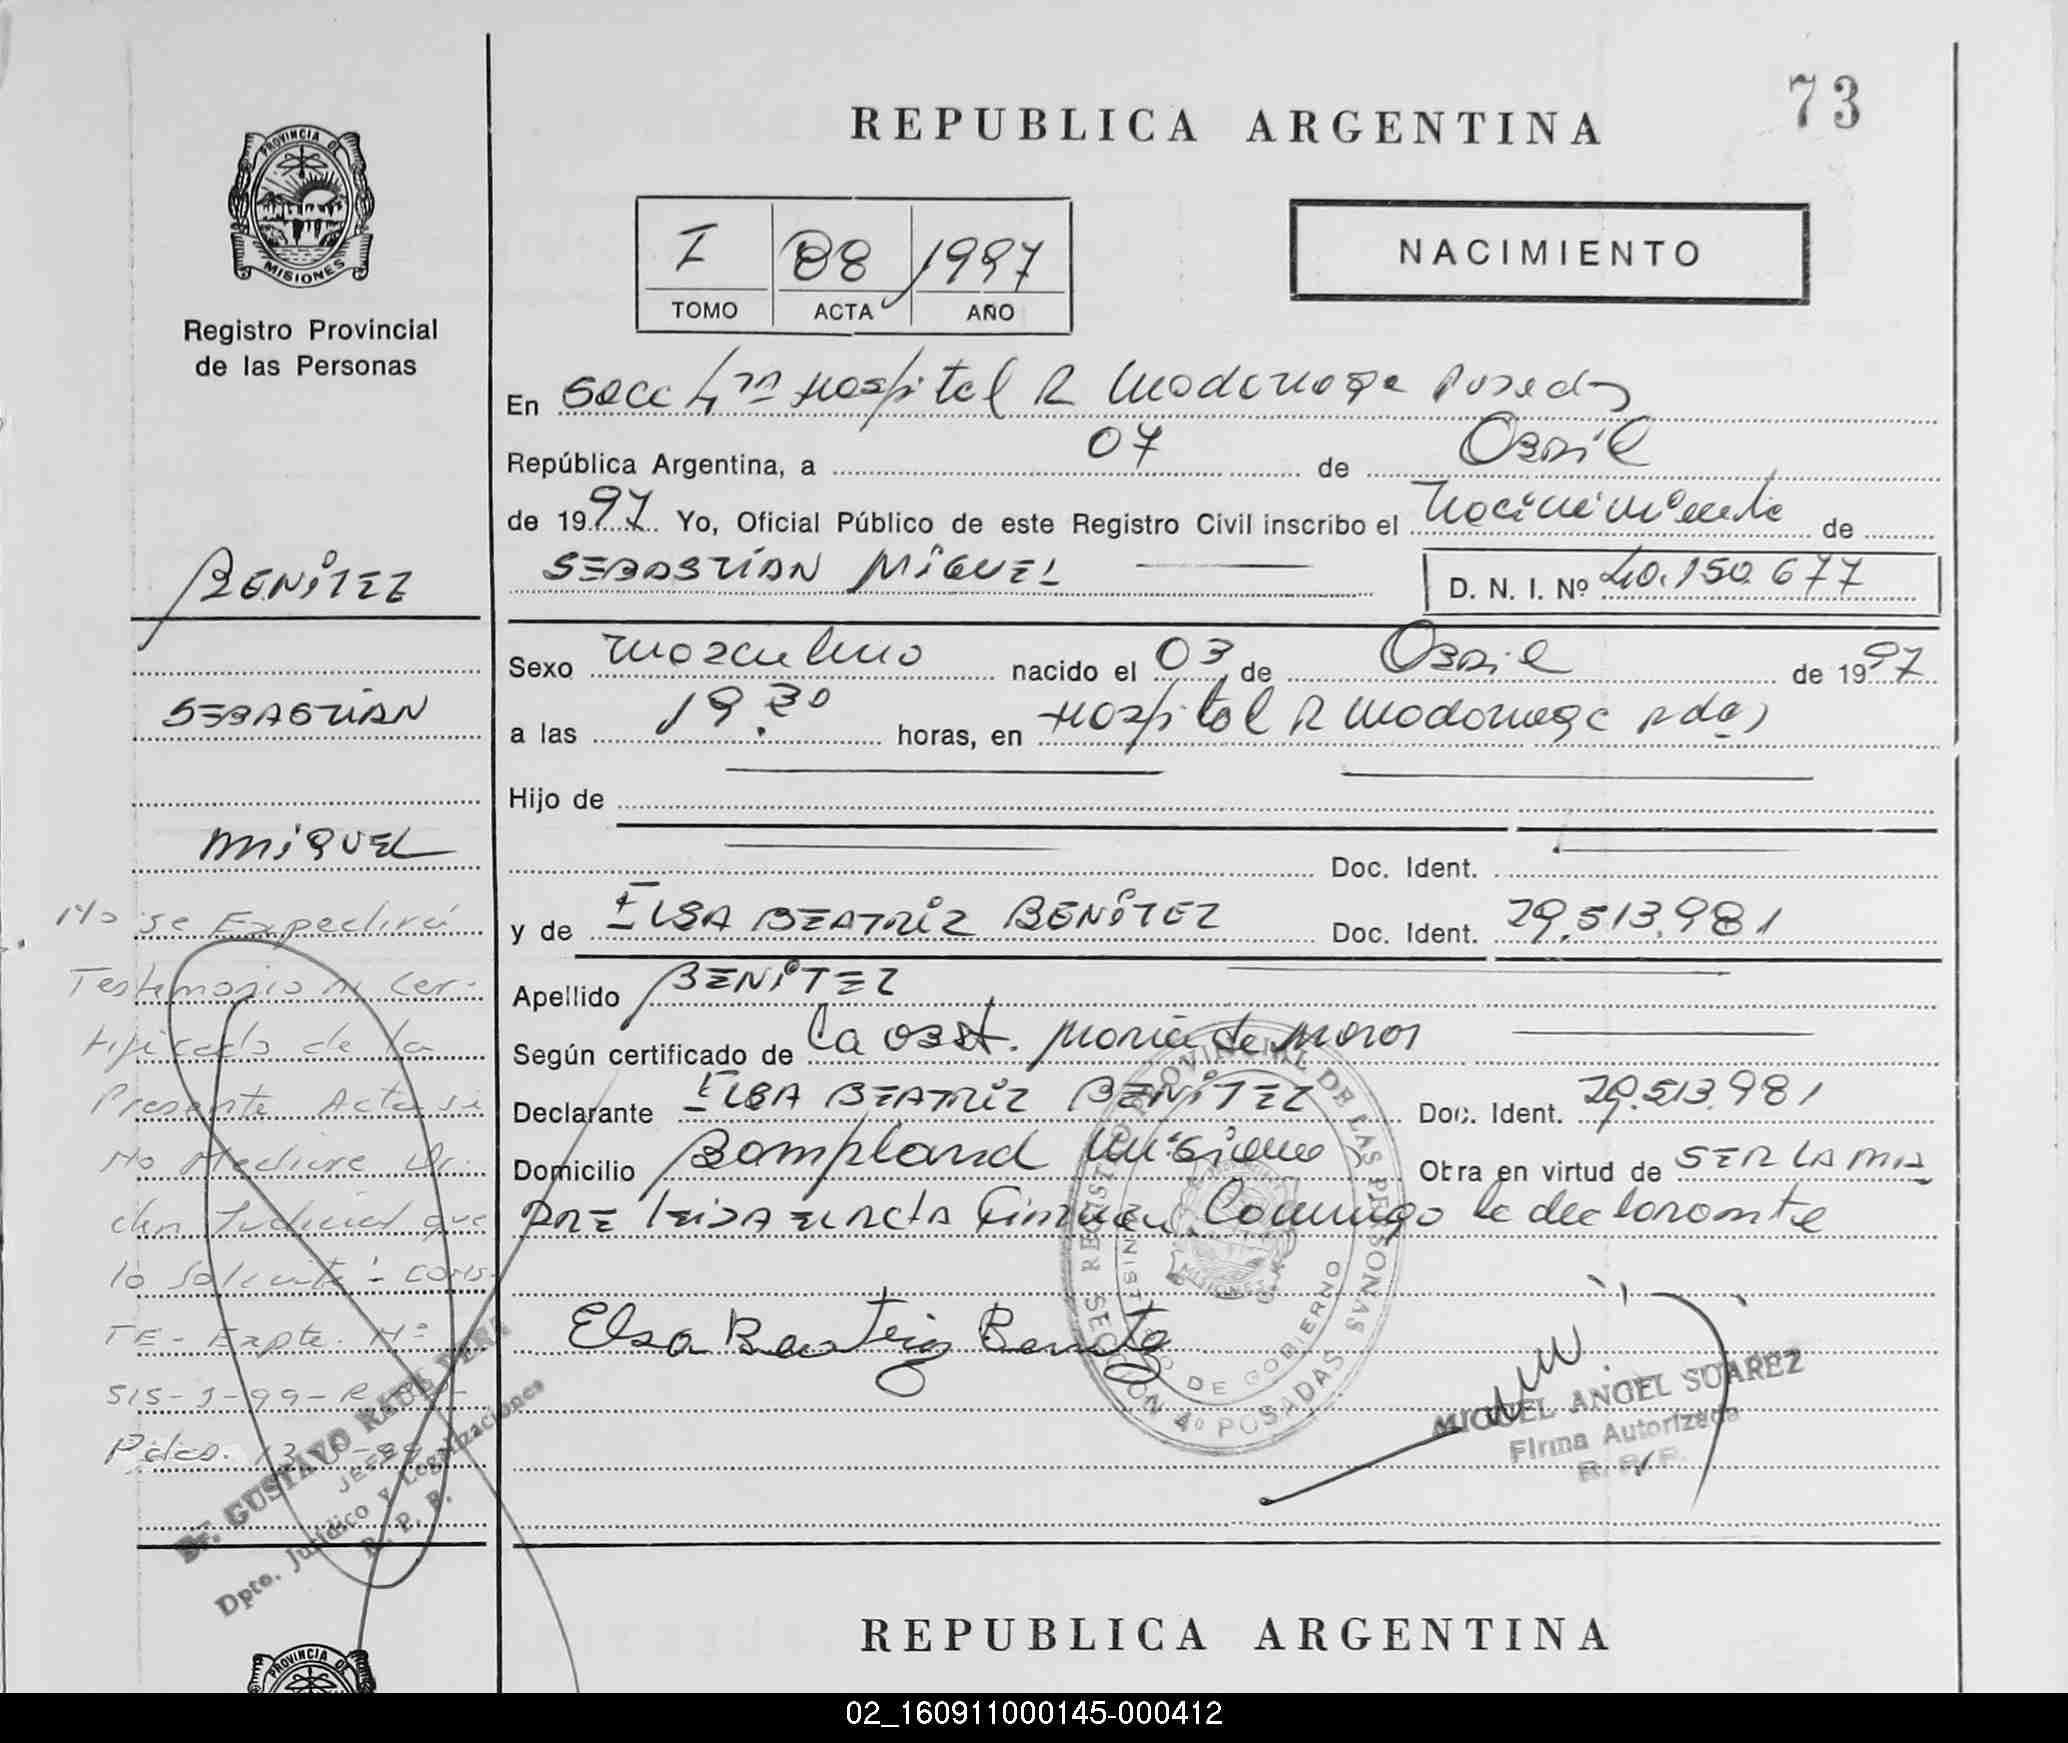 73
REPUBLICA ARGENTINA
PROVINCIA DE
MISIONES
Registro Provincial
de las Personas
NACIMIENTO
I 88 1997
TOMO ACTA AÑO
En Secc 4ta Hospital R Madariaga Posadas
República Argentina, a 07 de Abril
de 1997 Yo, Oficial Público de este Registro Civil inscribo el Nacimiento de
SEBASTIAN MIGUEL D. N. I. Nº 40.150.677
BENITEZ
SEBASTIAN
MIGUEL
Sexo masculino nacido el 03 de Abril de 1997
a las 19.30 horas, en Hospital R Madariaga Pdas
Hijo de
Doc. Ident.
y de ELSA BEATRIZ BENITEZ Doc. Ident. 29.513.981
Apellido BENITEZ
Según certificado de la obst. Maria de Moros
Declarante ELSA BEATRIZ BENITEZ Doc. Ident. 29.513.981
Domicilio Bompland Misiones Obra en virtud de SER LA MA
DRE leida el acta Firman Conmigo la declarante
Elsa Beatriz Benitez
No se Expedirá
Testimonio ni Cer-
tificado de la
Presente Acta si
No Mediare Or-
den Judicial que
lo Solicite - CONS-
TE - Expte. Nº
515-J-99-R
Pdas.
Dr. GUSTAVO RAUL VERA
JEFE
Dpto. Jurídico y Legalizaciones
R. P. P.
REGISTRO PROVINCIAL DE LAS PERSONAS
SECCION 4º POSADAS
DE GOBIERNO
MISIONES
MIGUEL ANGEL SUAREZ
Firma Autorizada
R. P. P.
REPUBLICA ARGENTINA
PROVINCIA DE
02_160911000145-000412